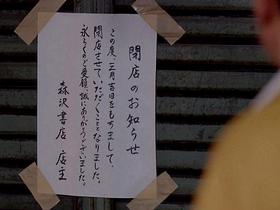 閉店のお知らせ
この度、三月吉日をもちまして、
閉店させていただくこととなりました。
永らくのご愛顧、誠にありがとうございました。
森沢書店 店主